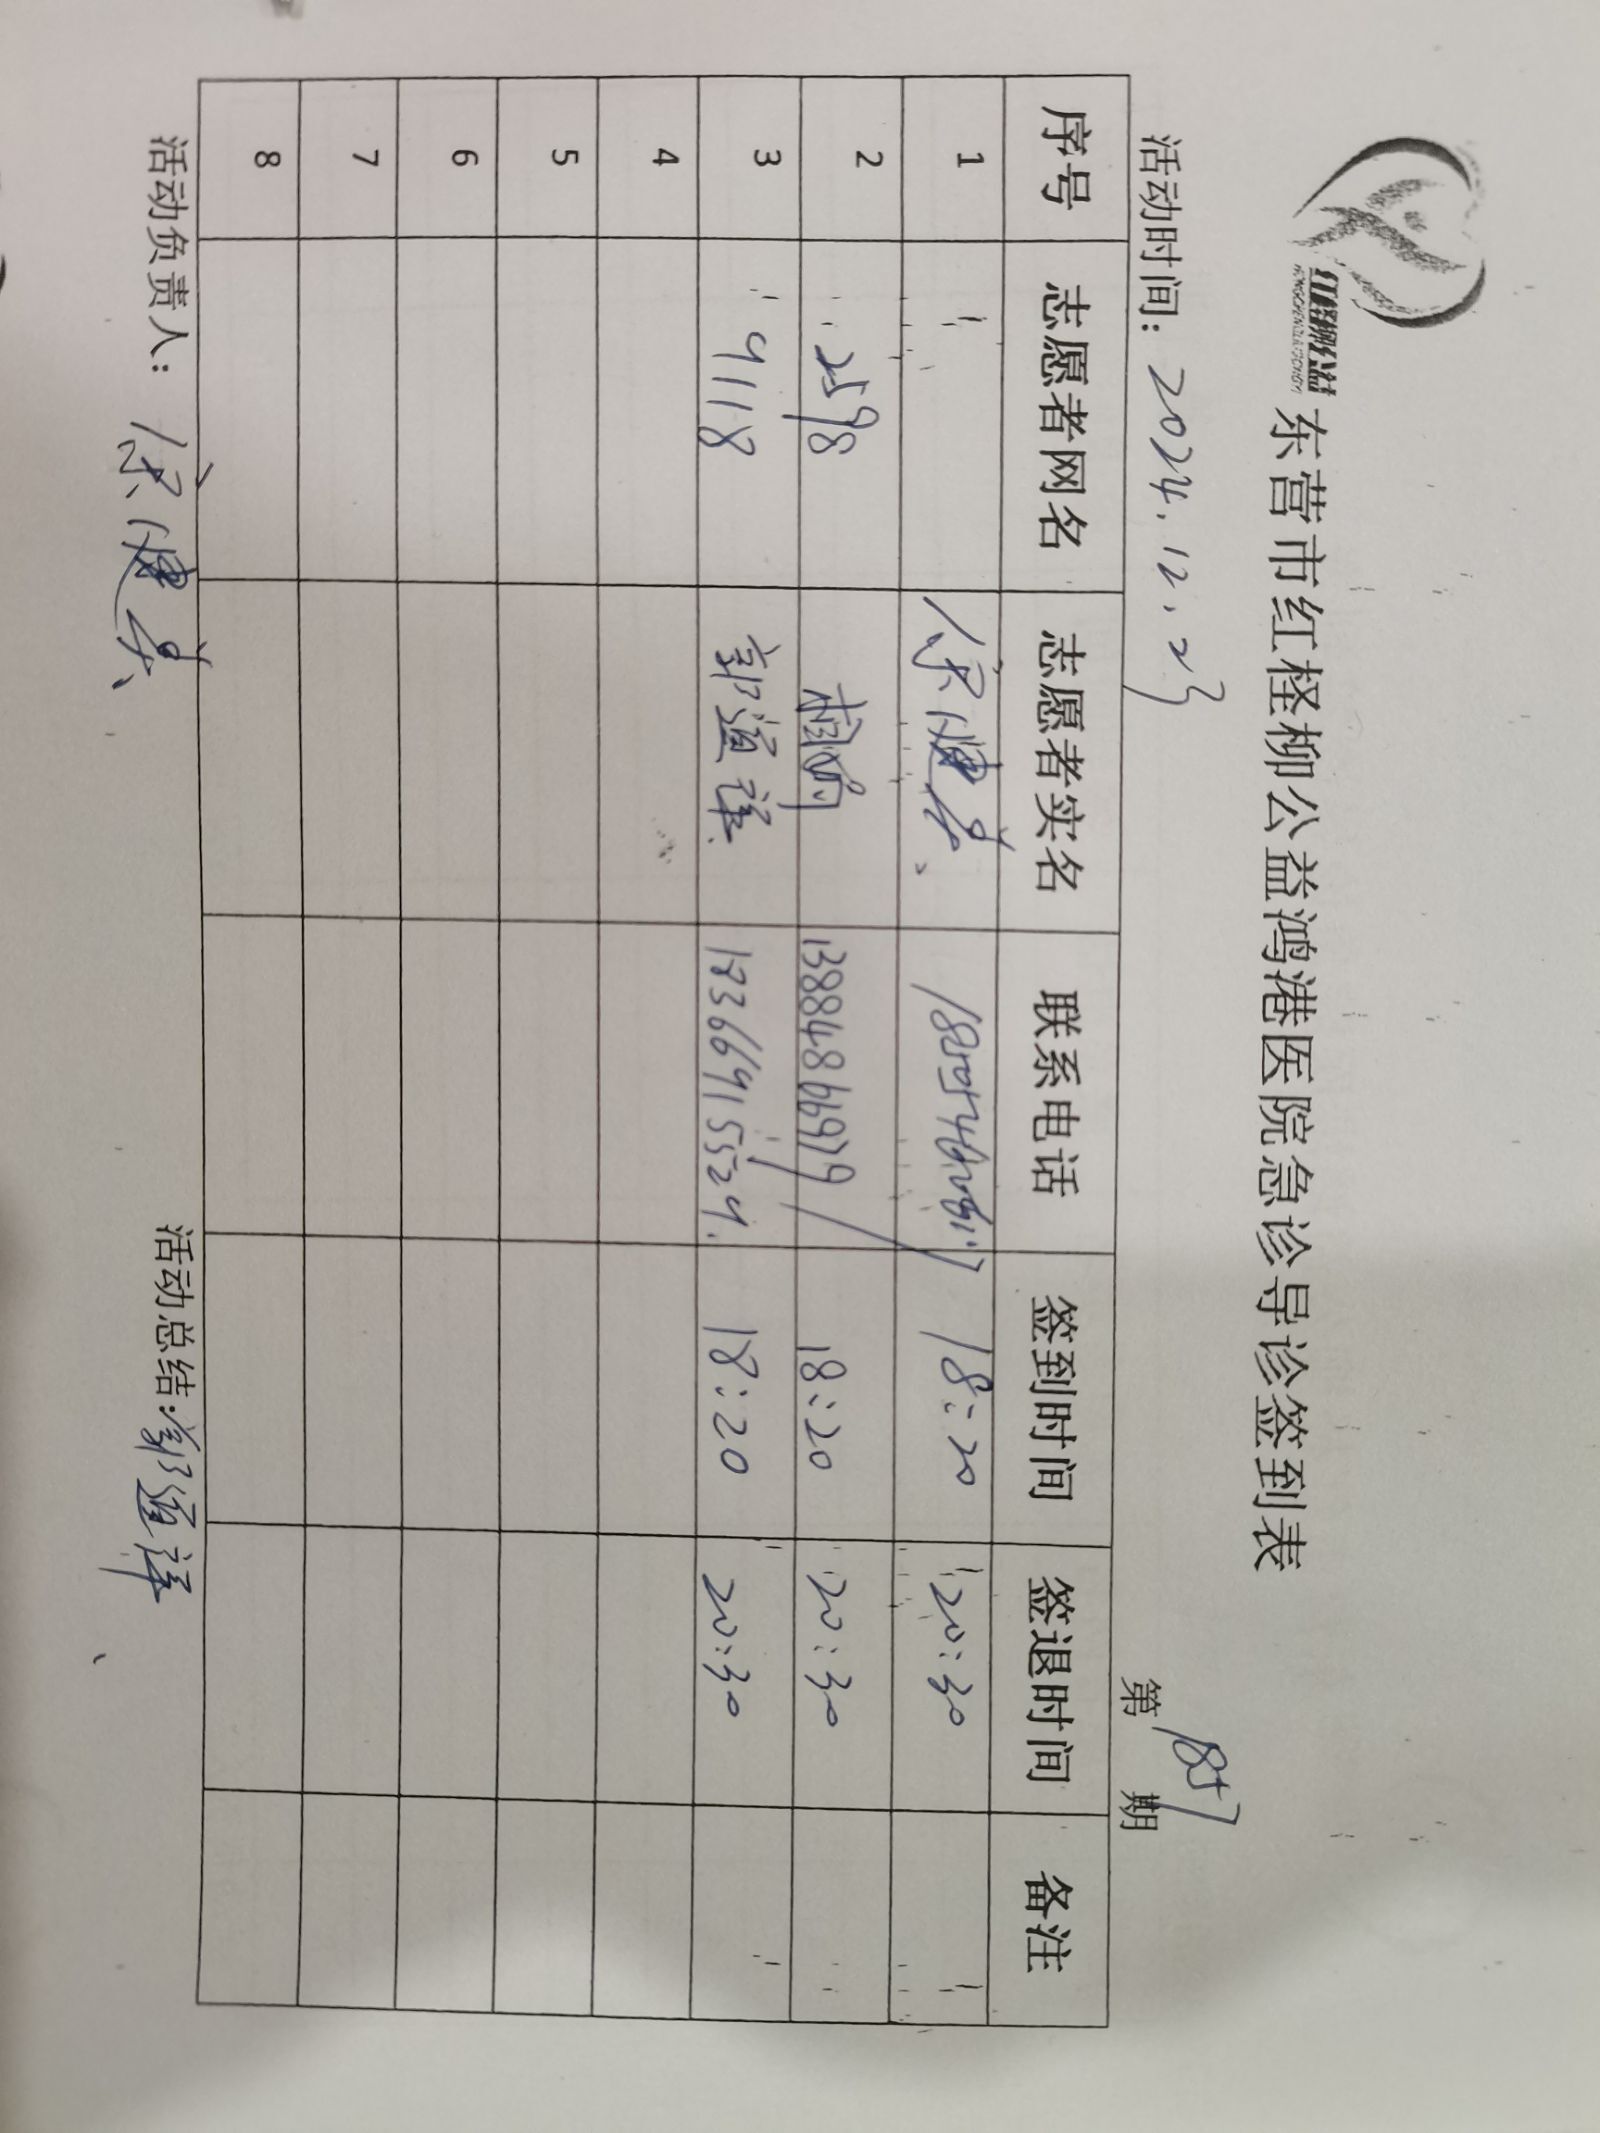 红柽柳公益
东营市红柽柳公益鸿港医院急诊导诊签到表
活动时间：2024.12.23 第1857期
序号 志愿者网名 志愿者实名 联系电话 签到时间 签退时间 备注
1 18:20 20:30
2 2598 18:20 20:30
3 9118 郭道祥 18366915524 18:20 20:30
4
5
6
7
8
活动负责人： 活动总结：郭道祥